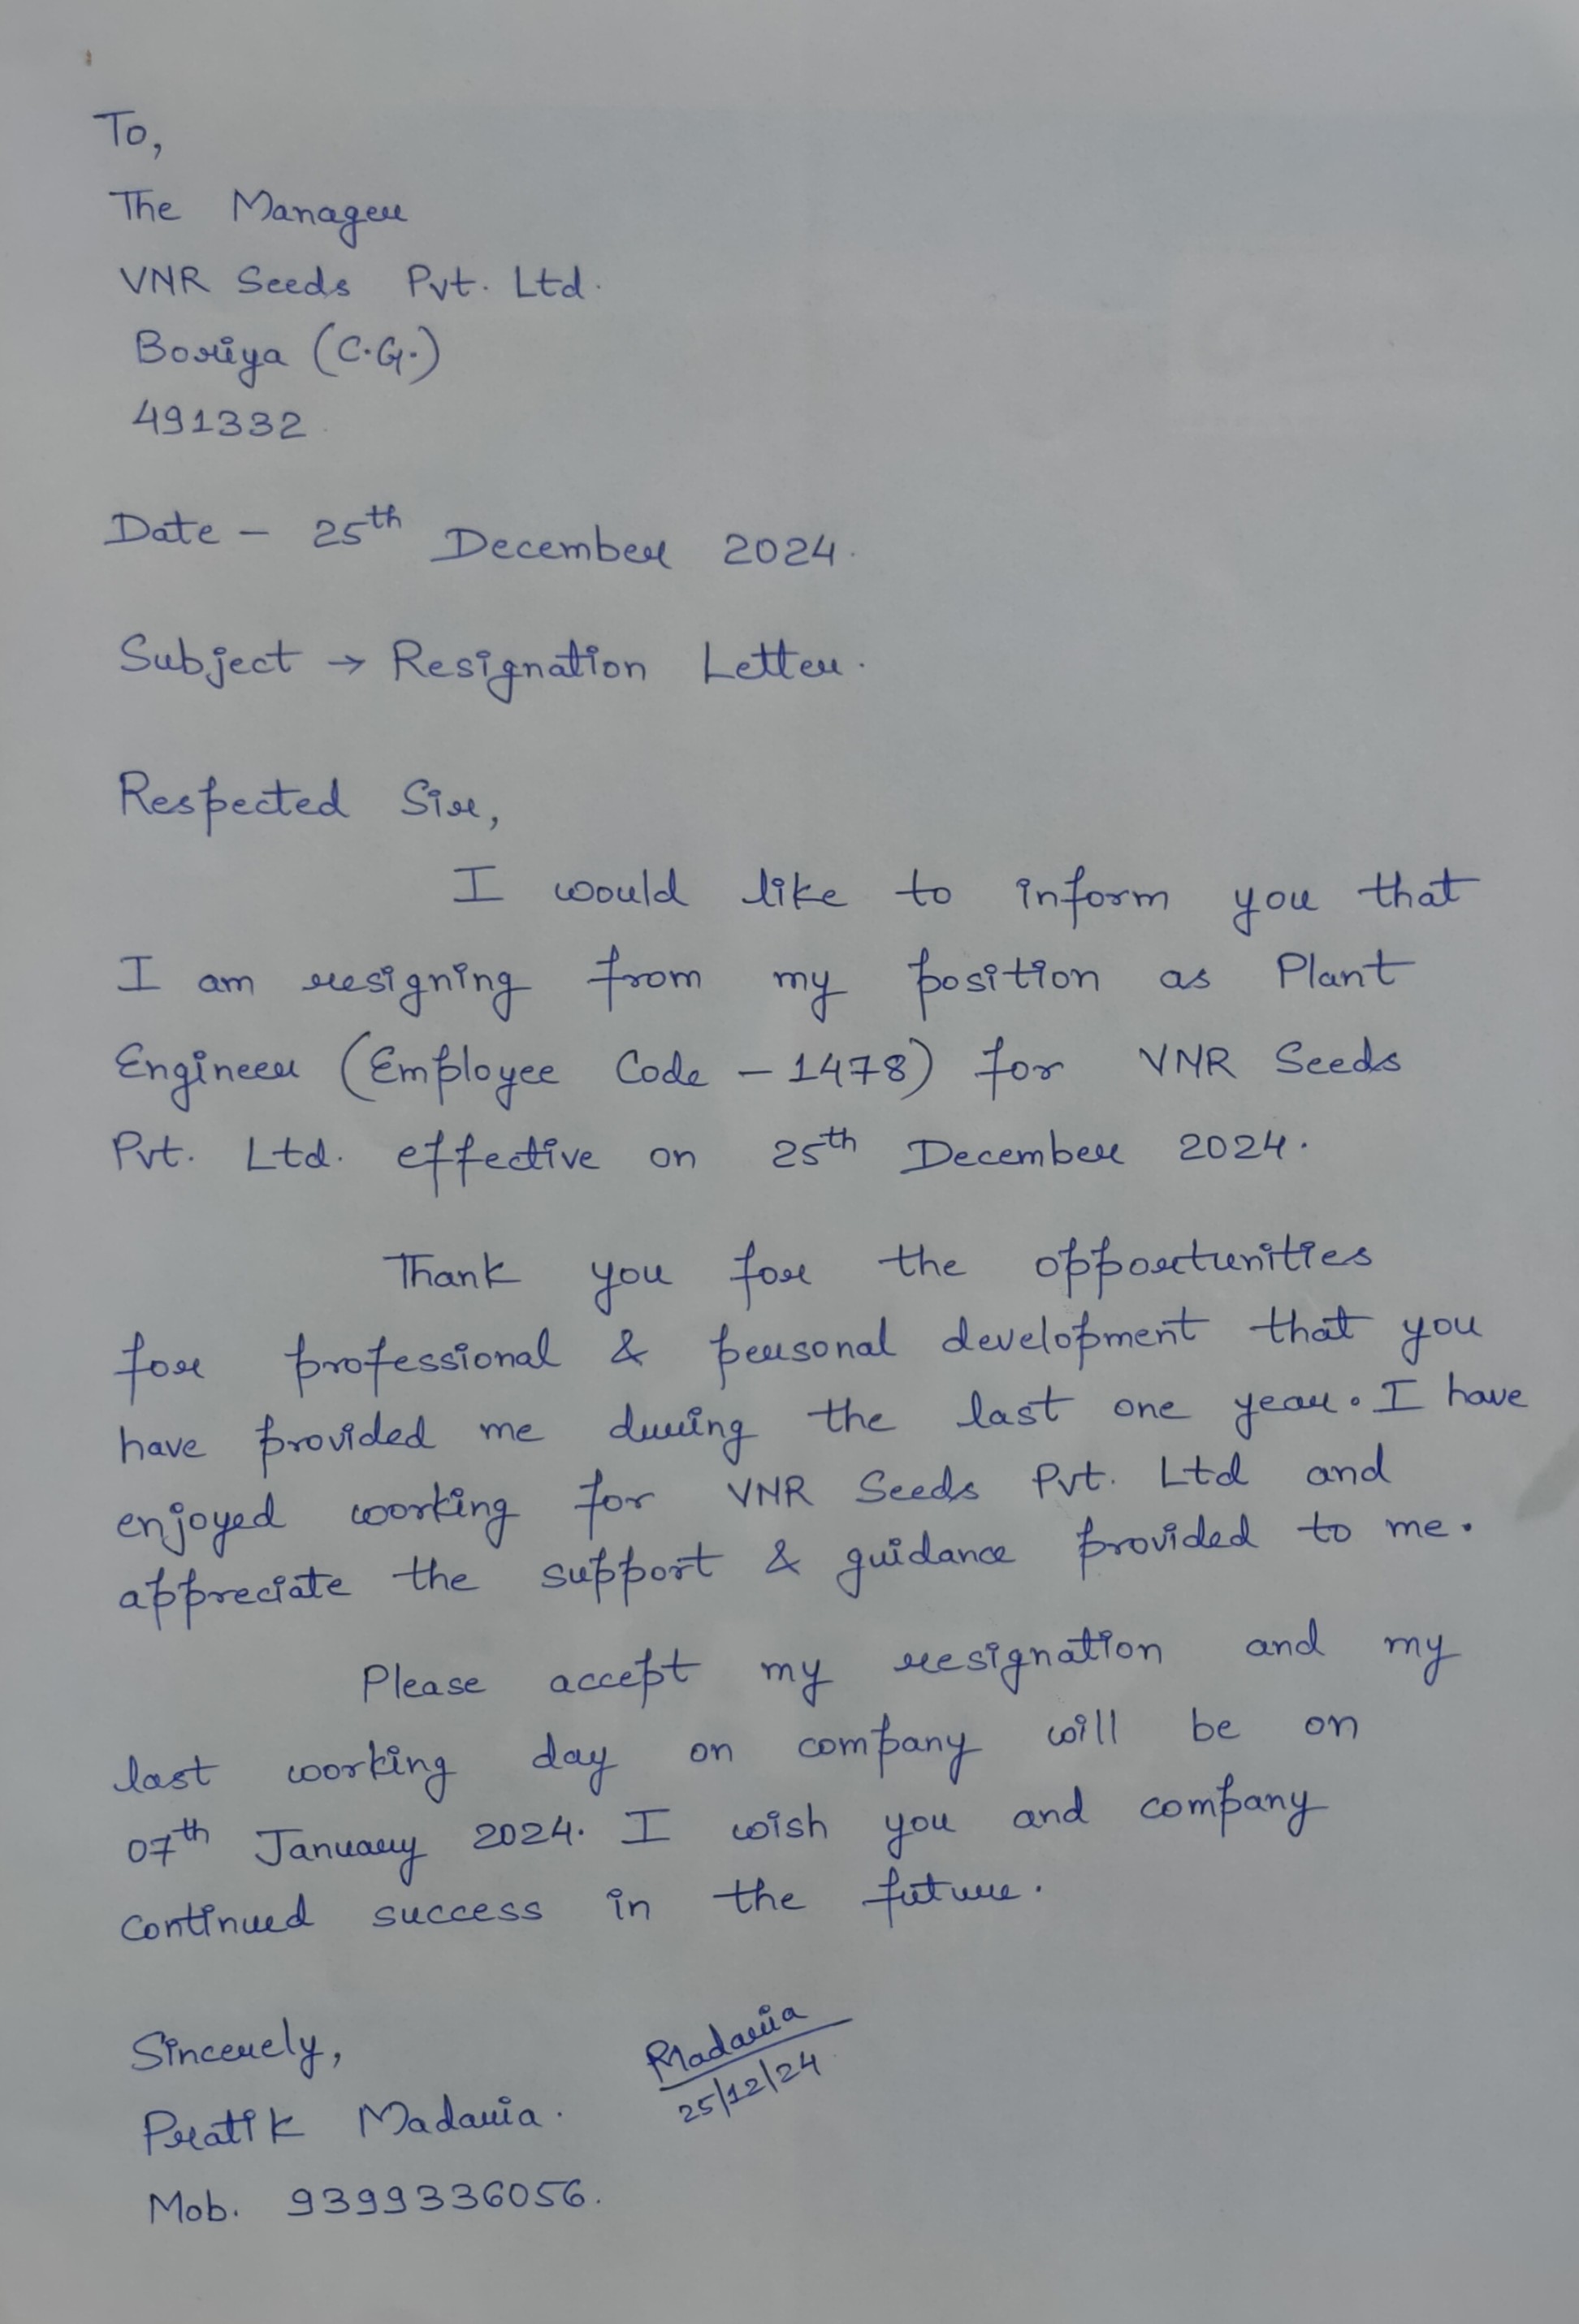 To,
The Manager
VNR Seeds Pvt. Ltd.
Boriya (C.G.)
491332
Date - 25th December 2024.
Subject → Resignation Letter.
Respected Sir,
I would like to inform you that
I am resigning from my position as Plant
Engineer (Employee Code - 1478) for VNR Seeds
Pvt. Ltd. effective on 25th December 2024.
Thank you for the opportunities
for professional & personal development that you
have provided me during the last one year. I have
enjoyed working for VNR Seeds Pvt. Ltd and
appreciate the support & guidance provided to me.
Please accept my resignation and my
last working day on company will be on
07th January 2024. I wish you and company
continued success in the future.
Sincerely,
Pratik Madaria.
Mob. 9399336056.
PMadaria
25/12/24